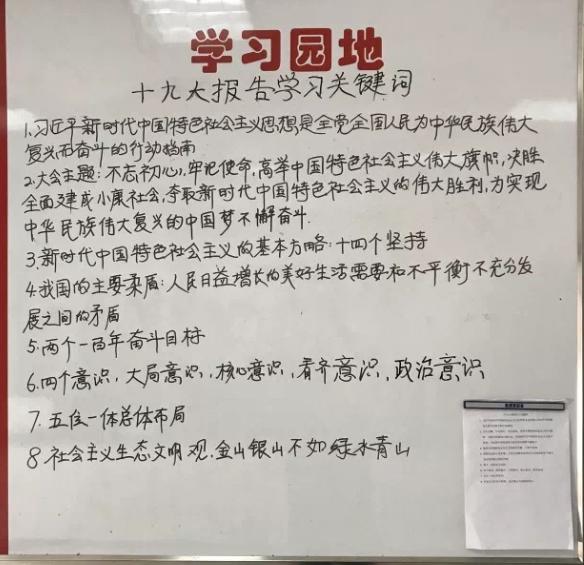 学习园地
十九大报告学习关键词
1.习近平新时代中国特色社会主义思想是全党全国人民为中华民族伟大
复兴而奋斗的行动指南
2.大会主题:不忘初心,牢记使命,高举中国特色社会主义伟大旗帜,决胜
全面建成小康社会,夺取新时代中国特色社会主义的伟大胜利,为实现
中华民族伟大复兴的中国梦不懈奋斗.
3.新时代中国特色社会主义的基本方略:十四个坚持
4.我国的主要矛盾:人民日益增长的美好生活需要和不平衡不充分发
展之间的矛盾
5.两个一百年奋斗目标
6.四个意识,大局意识,核心意识,看齐意识,政治意识
7.五位一体总体布局
8.社会主义生态文明观.金山银山不如绿水青山